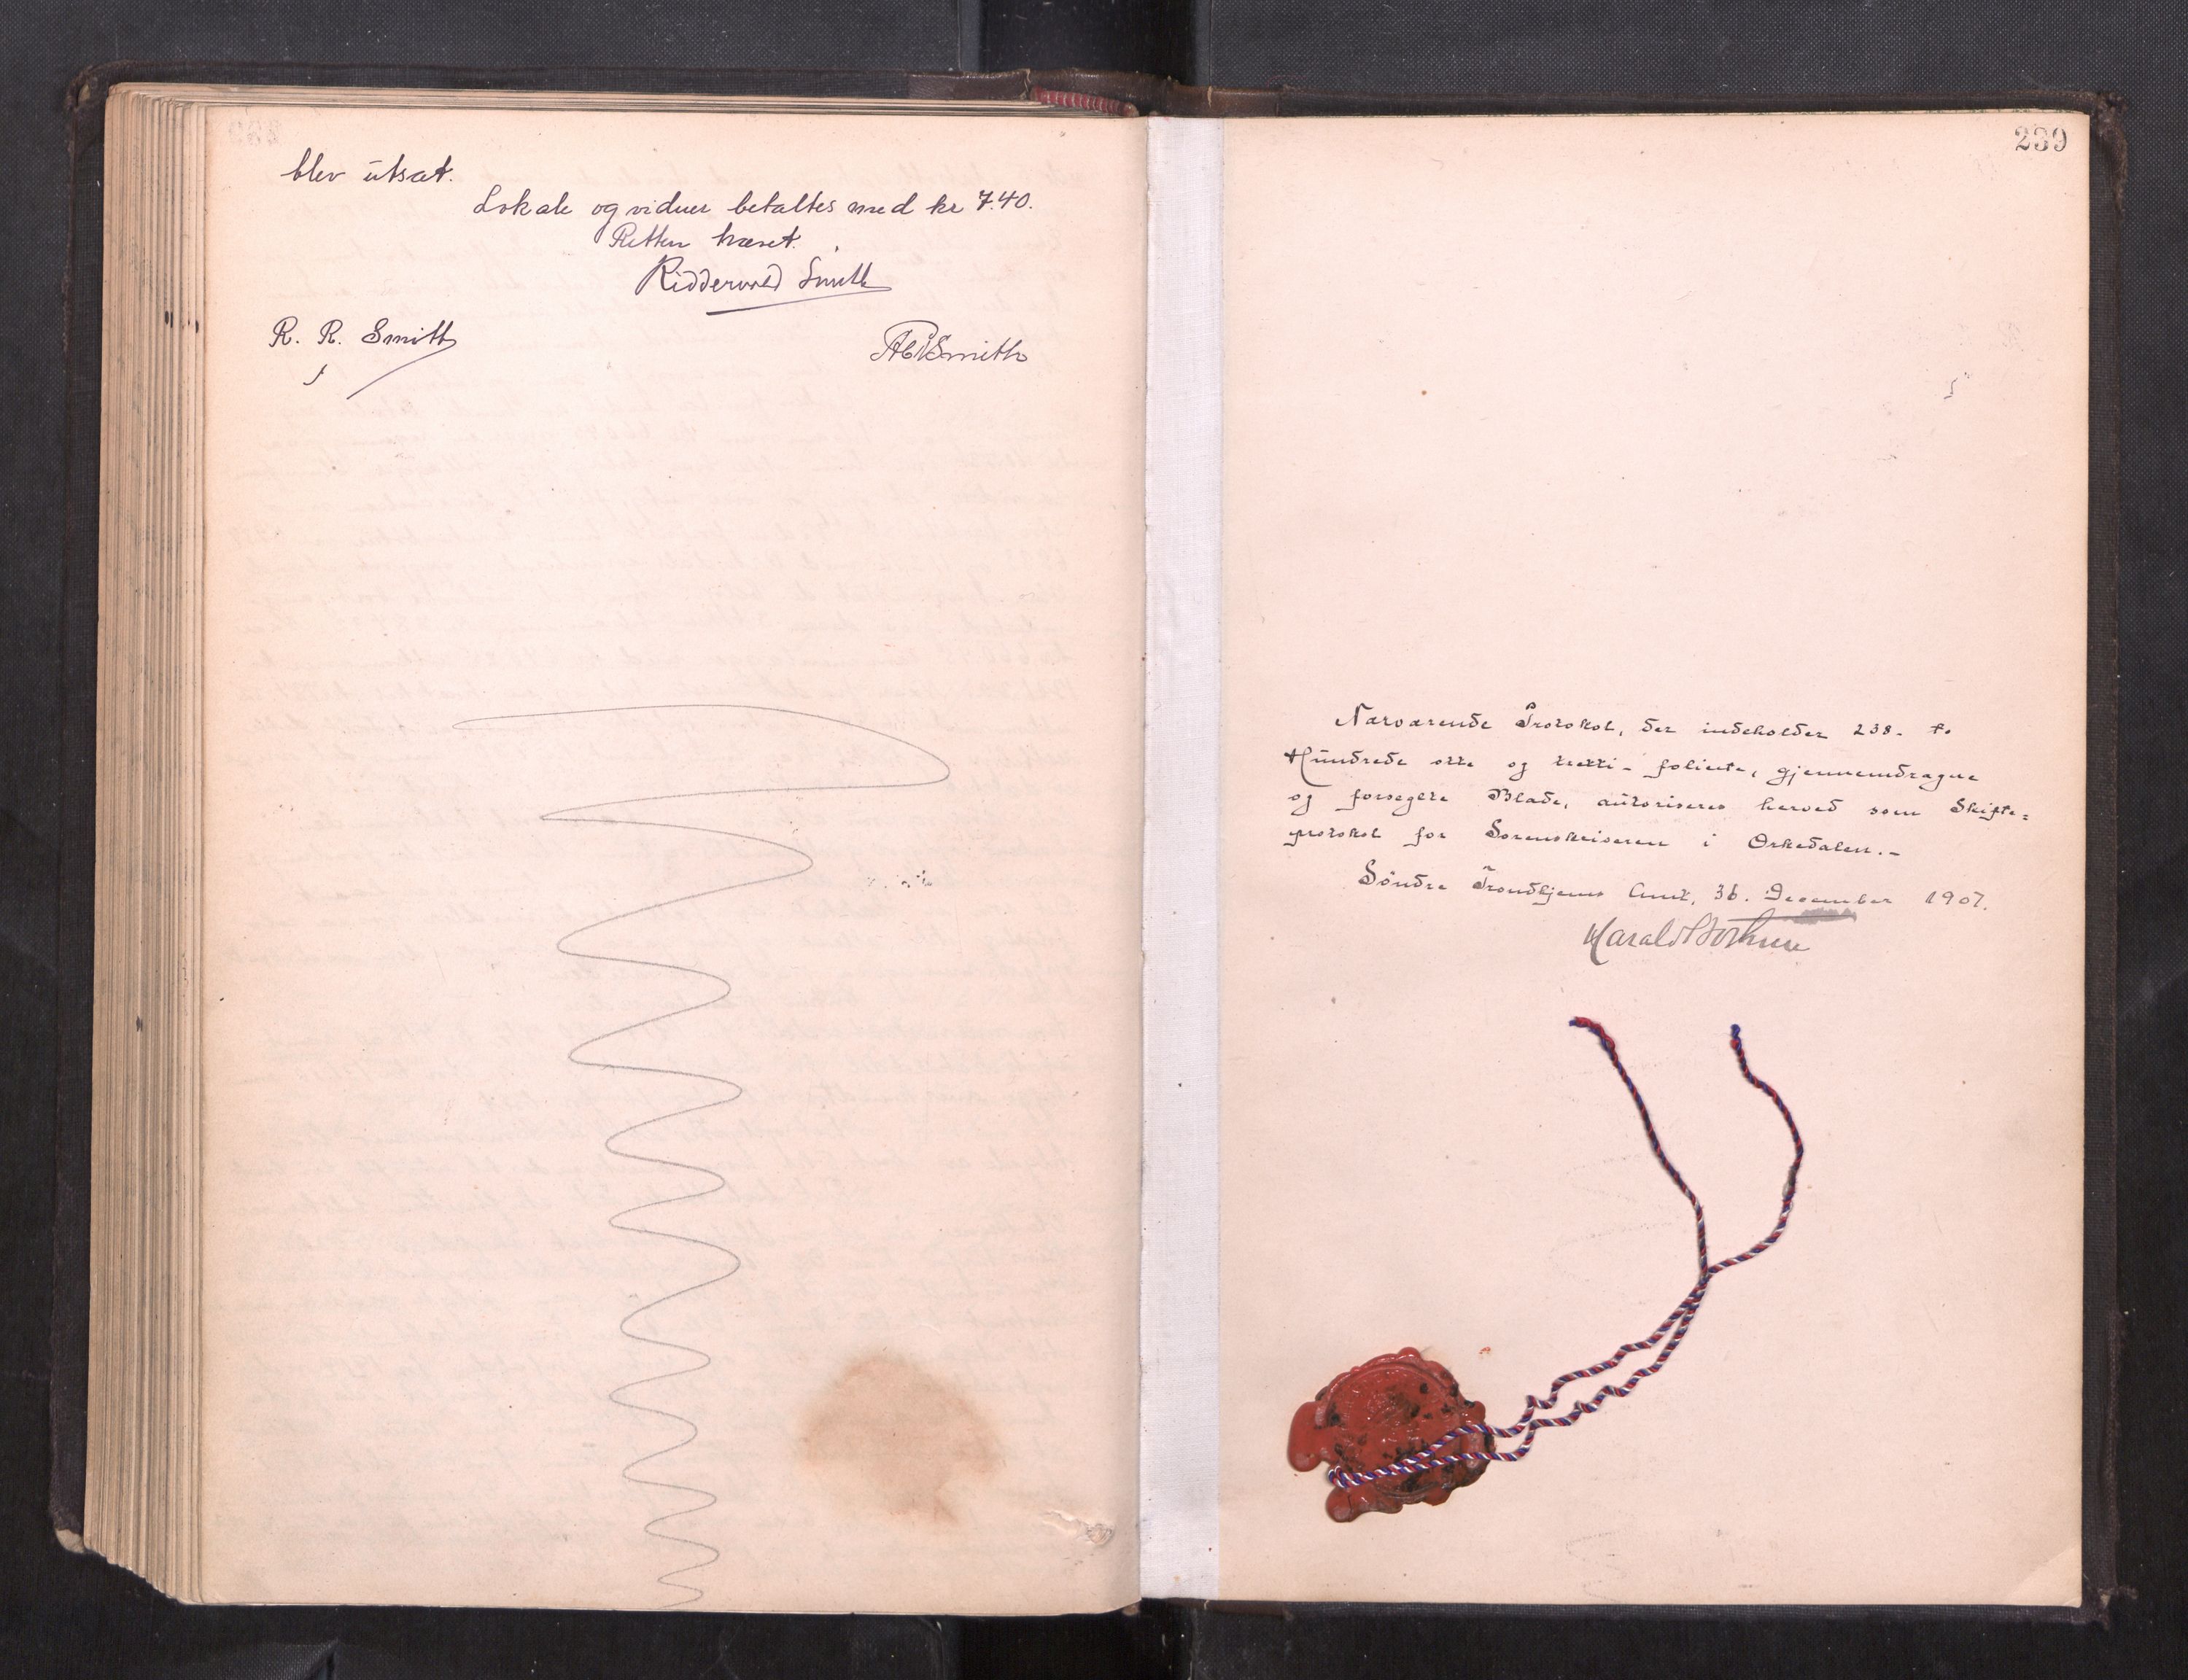 blev utsat.
Lokale og vidner betaltes med kr 7.40.
Retten hævet.
Ridderwold Smith
R. R. Smith
Smith
239
Nærværende Protokol, der indeholder 238. to
Hundrede otte og tretti- folierte, gjennemdragne
og forseglte Blade, autoriseres herved som Skifte=
protokol for Sorenskriveren i Orkedalen.-
Söndre Trondhjems Amt, December 1907.
Harald Bothner